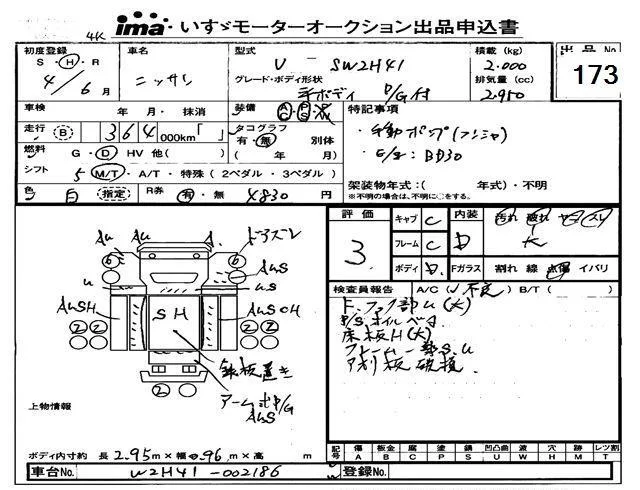 ima いすゞモーターオークション出品申込書
4K
初度登録 車名 型式 積載 (kg) 出品No
S・H・R U - SW2H41 2.000 173
4/6月 ニッサン グレード・ボディ形状 排気量 (cc)
平ボディ P/G付 2.950
車検 年・月・抹消 装備 AC PS 特記事項
走行 (B) 364000km「 」 タコグラフ 有・無 別体 ・手動ポンプ(フンシャ)
燃料 G・D・HV 他( ) ( 年 月) ・E/g:BD30
シフト 5 M/T・A/T・特殊 (2ペダル・3ペダル)
色 白 (指定) R券 有・無 4830円 架装物年式:( 年式)・不明
※不明の場合は、不明に○をする。
評価 3 キャブ C 内装 D 汚れ 破れ ヤニ スリ
フレーム C 大
ボディ D Fガラス 割れ 線 点傷 イバリ
検査員報告 A/C(レ 不定) B/T( )
F.ファク部U(大)
P/Sオイルベタ
床板H(大)
フレーム一部S.U
アオリ板破損
Au Au A ドアズレ
6 6
AuS
u uS
AuSH SH AuSOH
2 2 2 2
鉄板置き
2 アーム式P/G
AuS
上物情報
ボディ内寸約 長 2.95m×幅 0.96m×高 m
記号 傷 A 板金 B 腐 C 塗 P 錆 S 凹凸曲 U 波 W 穴 H 跡 M レツ割 T
車台No. W2H41-002186 登録No.